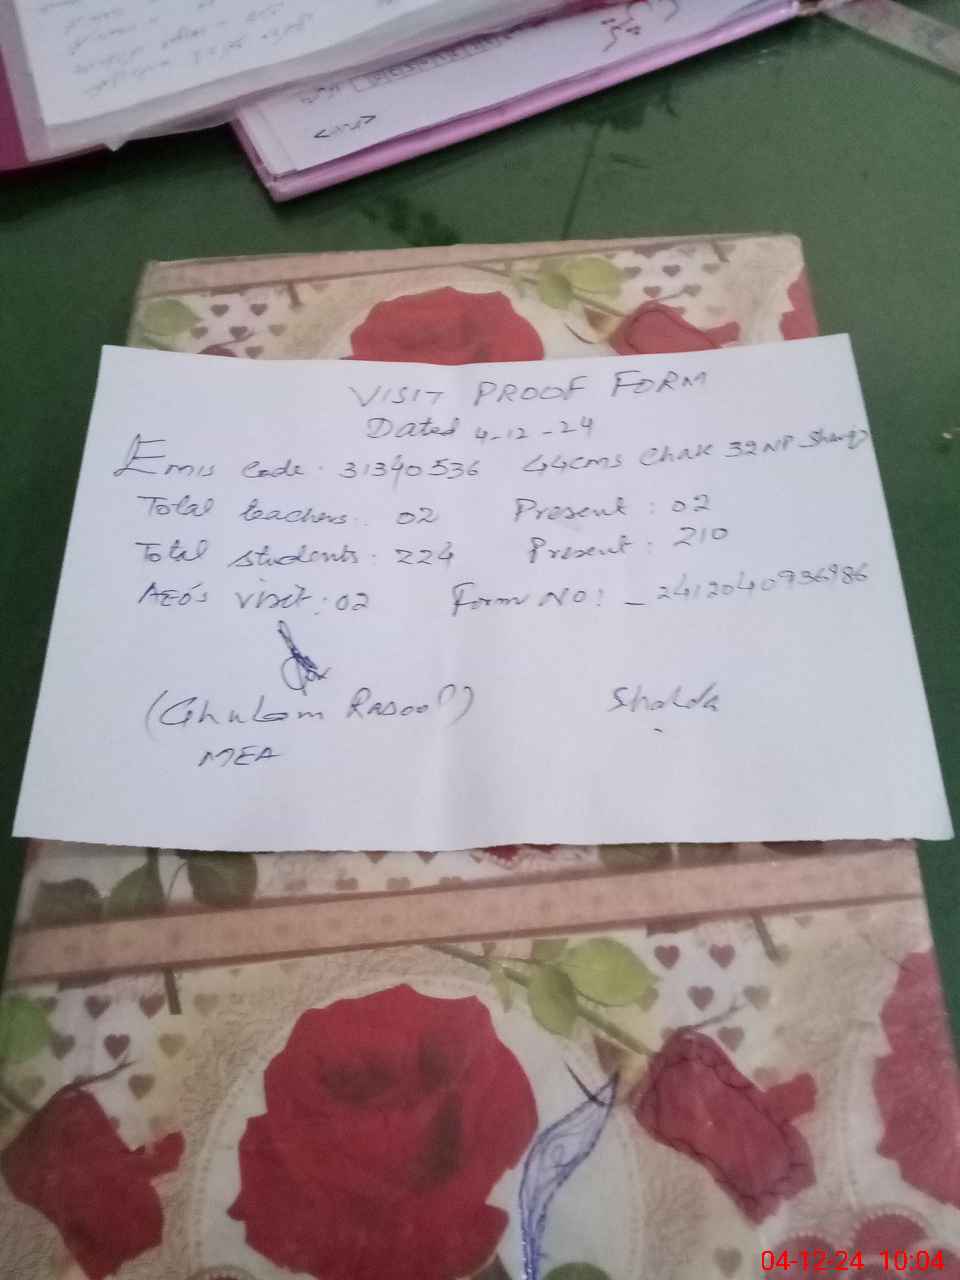 VISIT PROOF FORM
Dated 4-12-24
Emis Code. 31340536 44cms Chak 32NP Sharif
Total teachers: 02 Present: 02
Total students: 224 Present: 210
AEO's visit: 02 Form NO: - 2412040936986
(Ghulam Rasool)
MEA
04-12-24 10:04